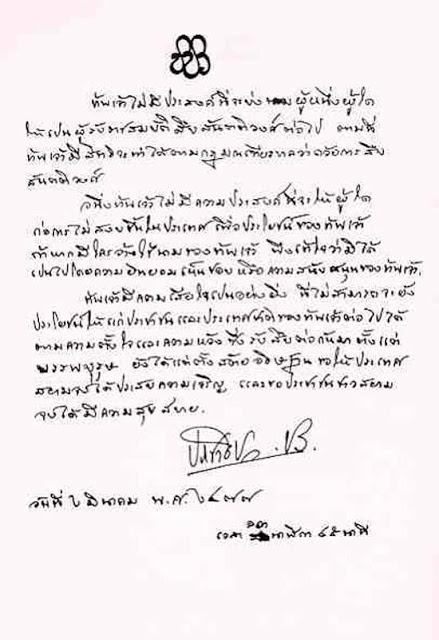 ข้าพเจ้าไม่มีประสงค์ที่จะบ่งนามผู้หนึ่งผู้ใด
ให้เป็นผู้รับราชสมบัติสืบสันตติวงศ์ต่อไป ตามที่
ข้าพเจ้ามีสิทธิจะทำได้ตามกฎมณเฑียรบาลว่าด้วยการสืบ
สันตติวงศ์
อนึ่งข้าพเจ้าไม่มีความประสงค์ที่จะให้ผู้ใด
ก่อการไม่สงบขึ้นในประเทศ เพื่อประโยชน์ของข้าพเจ้า
ถ้าหากมีใครอ้างใช้นามของข้าพเจ้า พึงเข้าใจว่ามิได้
เป็นไปโดยความยินยอมเห็นชอบ หรือความสนับสนุนของข้าพเจ้า.
ข้าพเจ้ามีความเสียใจเป็นอย่างยิ่ง ที่ไม่สามารถจะยัง
ประโยชน์ให้แก่ประชาชน และประเทศชาติของข้าพเจ้าต่อไปได้
ตามความตั้งใจและความหวัง ซึ่งรับสืบต่อกันมาตั้งแต่
บรรพบุรุษ ยังได้แต่ตั้งสัตยอธิษฐาน ขอให้ประเทศ
สยามจงได้ประสบความเจริญ และขอประชาชนชาวสยาม
จงได้มีความสุขสบาย.
ประชาธิปก. ปร.
วันที่ ๒ มีนาคม พ.ศ. ๒๔๗๗
เวลา นาฬิกา ๔๕ นาที